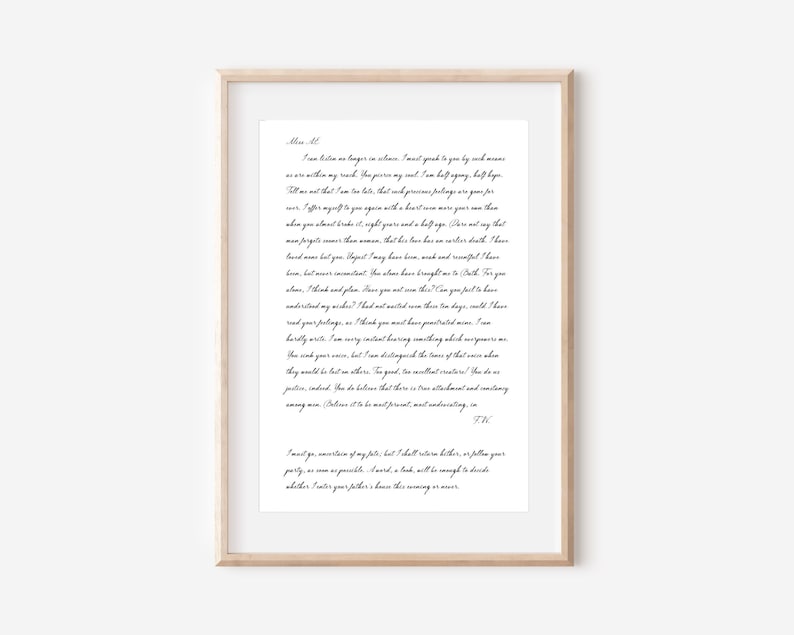 Miss A.E
I can listen no longer in silence. I must speak to you by such means
as are within my reach. You pierce my soul. I am half agony, half hope.
Tell me not that I am too late, that such precious feelings are gone for
ever. I offer myself to you again with a heart even more your own than
when you almost broke it, eight years and a half ago. Dare not say that
man forgets sooner than woman, that his love has an earlier death. I have
loved none but you. Unjust I may have been, weak and resentful I have
been, but never inconstant. You alone have brought me to Bath. For you
alone, I think and plan. Have you not seen this? Can you fail to have
understood my wishes? I had not waited even these ten days, could I have
read your feelings, as I think you must have penetrated mine. I can
hardly write. I am every instant hearing something which overpowers me.
You sink your voice, but I can distinguish the tones of that voice when
they would be lost on others. Too good, too excellent creature! You do us
justice, indeed. You do believe that there is true attachment and constancy
among men. Believe it to be most fervent, most undeviating, in
F.W.
I must go, uncertain of my fate; but I shall return hither, or follow your
party, as soon as possible. A word, a look, will be enough to decide
whether I enter your father's house this evening or never.